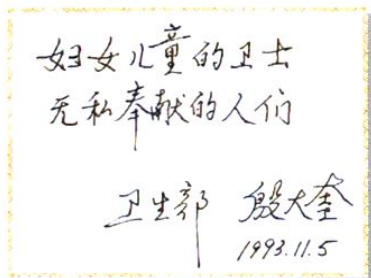 妇女儿童的卫士
无私奉献的人们
卫生部 殷大奎
1993.11.5